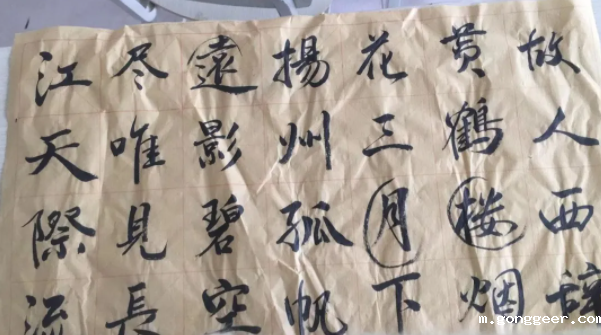 故人西辞
黄鶴楼烟
花三月下
揚州孤帆
遠影碧空
尽唯見長
江天際流
m.gonggeer.com